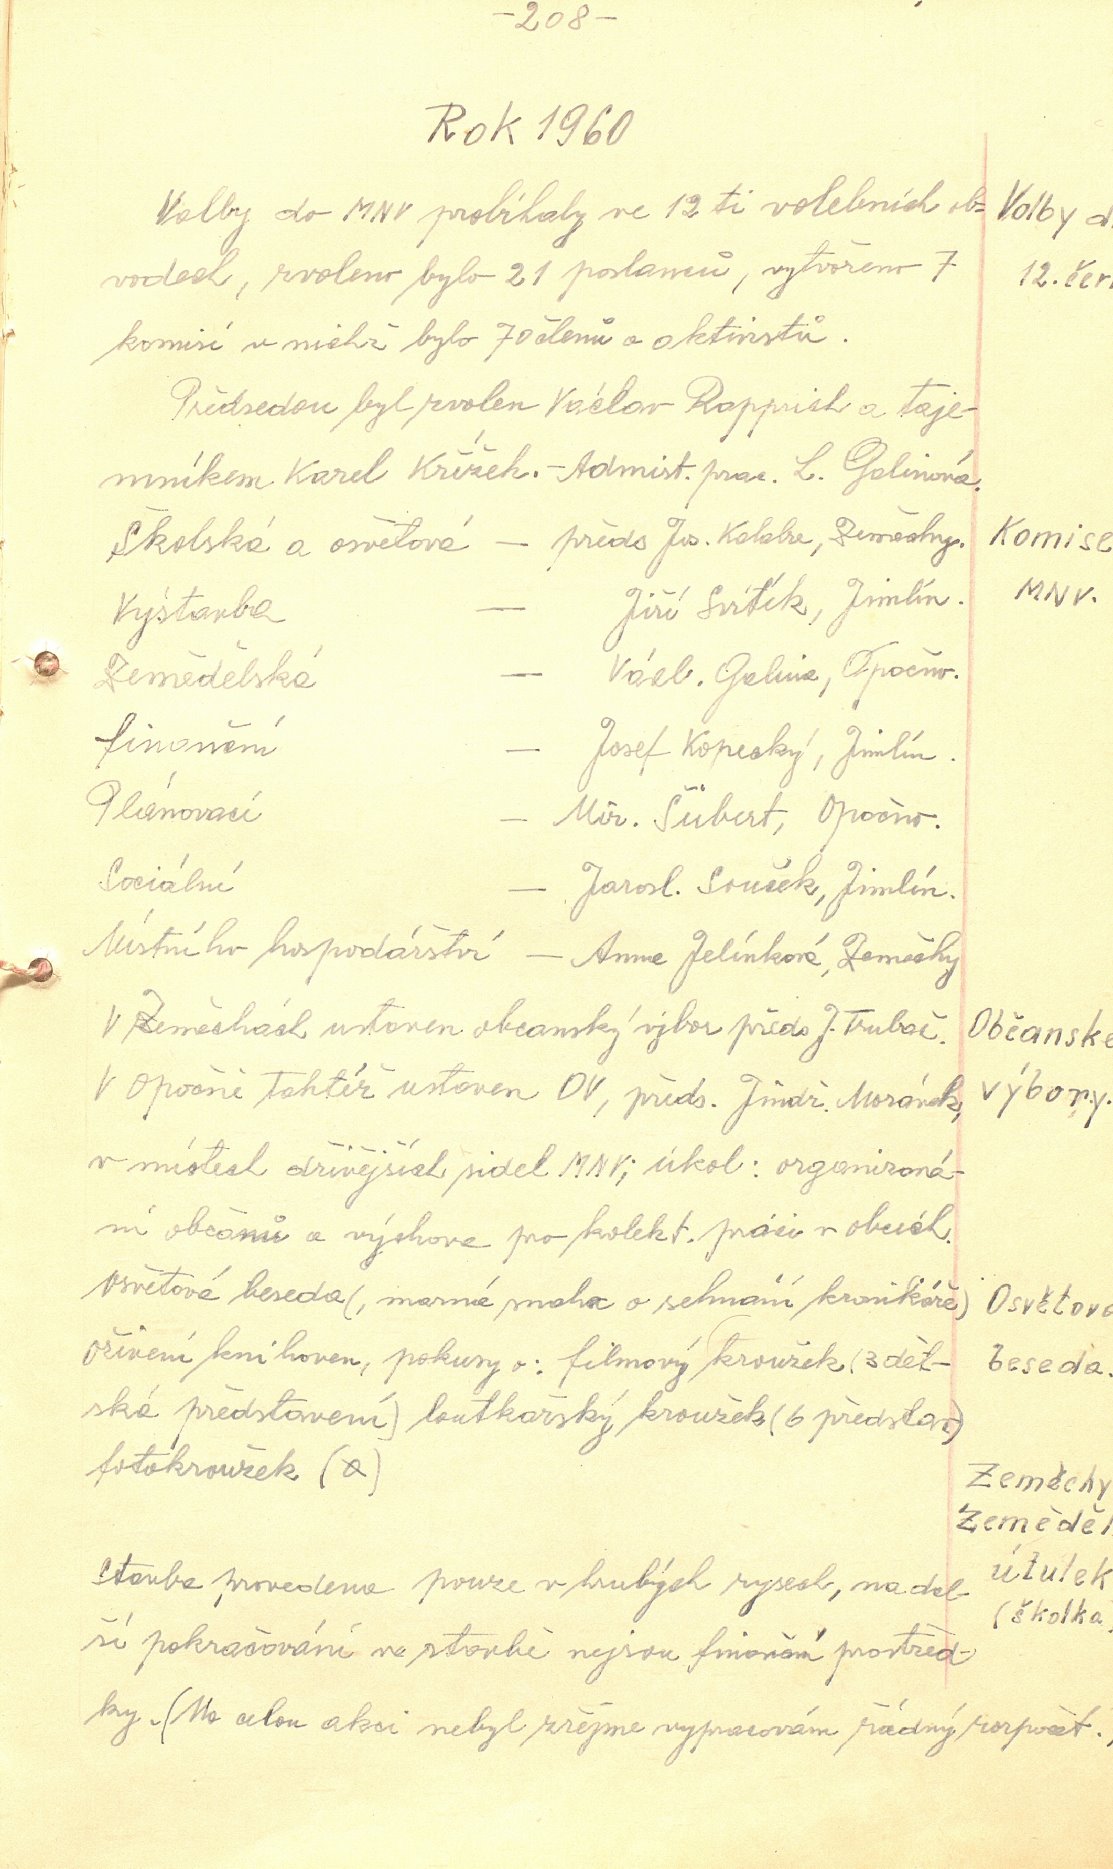 -208-
Rok 1960
Volby do MNV probíhaly ve 12 ti volebních ob=
vodech, zvoleno bylo 21 poslanců, vytvořeno 7
komisí v nichž bylo 70 členů a aktivistů.
Předsedou byl zvolen Václav Rapprich a taje-
mníkem Karel Křížek. - Admist. prac. L. Galinová.
Školská a osvětová - předs Jos. Kalabze, Zeměchy.
Výstavba - Jiří Svítek, Jimlín.
Zemědělská - Václ. Galina, Opočno.
finanční - Josef Kopecký, Jimlín.
Plánovací - Mir. Šubert, Opočno.
Sociální - Jarosl. Souček, Jimlín.
Místního hospodářství - Anna Jelínková, Zeměchy
V Zeměchách ustaven občanský výbor předs J. Trubač.
V Opočně taktéž ustaven OV, předs. Jindř. Morávek,
v místech dřívějších sídel MNV; úkol: organizová-
ní občanů a výchova pro kolekt. práci v obcích.
Osvětová beseda (, marná snaha o sehnání kronikáře)
oživení knihoven, pokusy o: filmový kroužek (3 dět-
ská představení) loutkářský kroužek (6 představ)
fotokroužek (a)
Stavba provedena pouze v hrubých rysech, na dal-
ší pokračování ve stavbě nejsou finanční prostřed-
ky. (Na celou akci nebyl zřejmě vypracován řádný rozpočet.)
Volby d
12. čer
Komise
MNV.
Občanské
výbory.
Osvětova
beseda.
Zeměchy
Zeměděl
útulek
(školka)